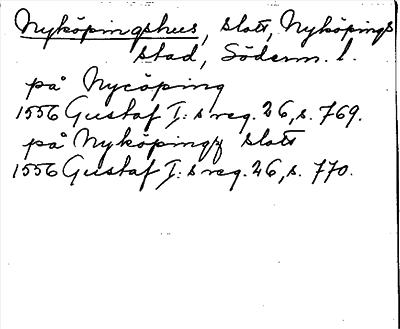 Nyköpingshus, slott, Nyköpings
stad, Söderm. l.
på Nycöping
1556 Gustaf I: s reg. 26, s. 769.
på Nyköpingz slott
1556 Gustaf I: s reg. 26, s. 770.